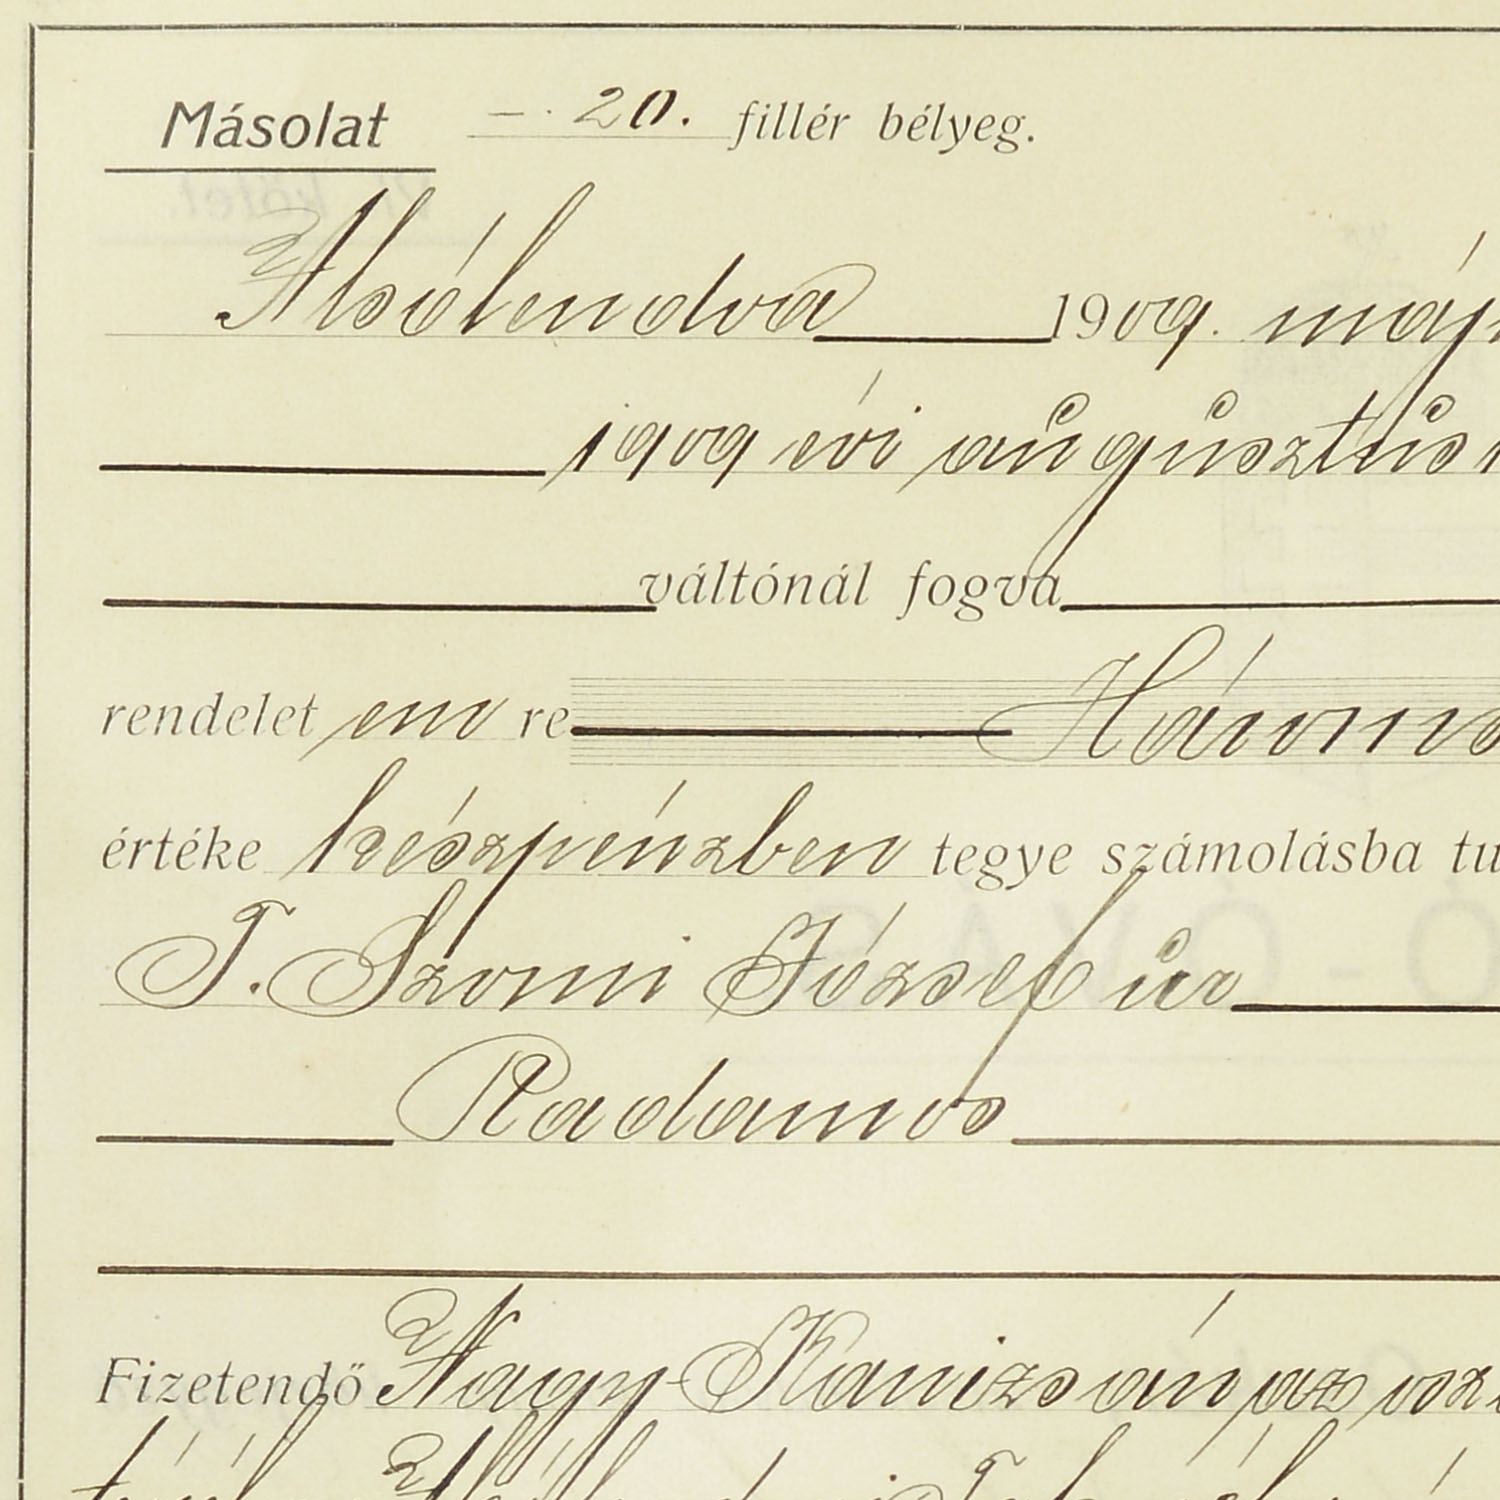 Másolat — . 20. fillér bélyeg.
Alsólendva 1909. máj
1909 évi augusztus
váltónál fogva
rendelet em re Három
értéke készpénzben tegye számolásba tu
T. Szomi József úr
Radamos
Fizetendő Nagy-Kanizsán az osz